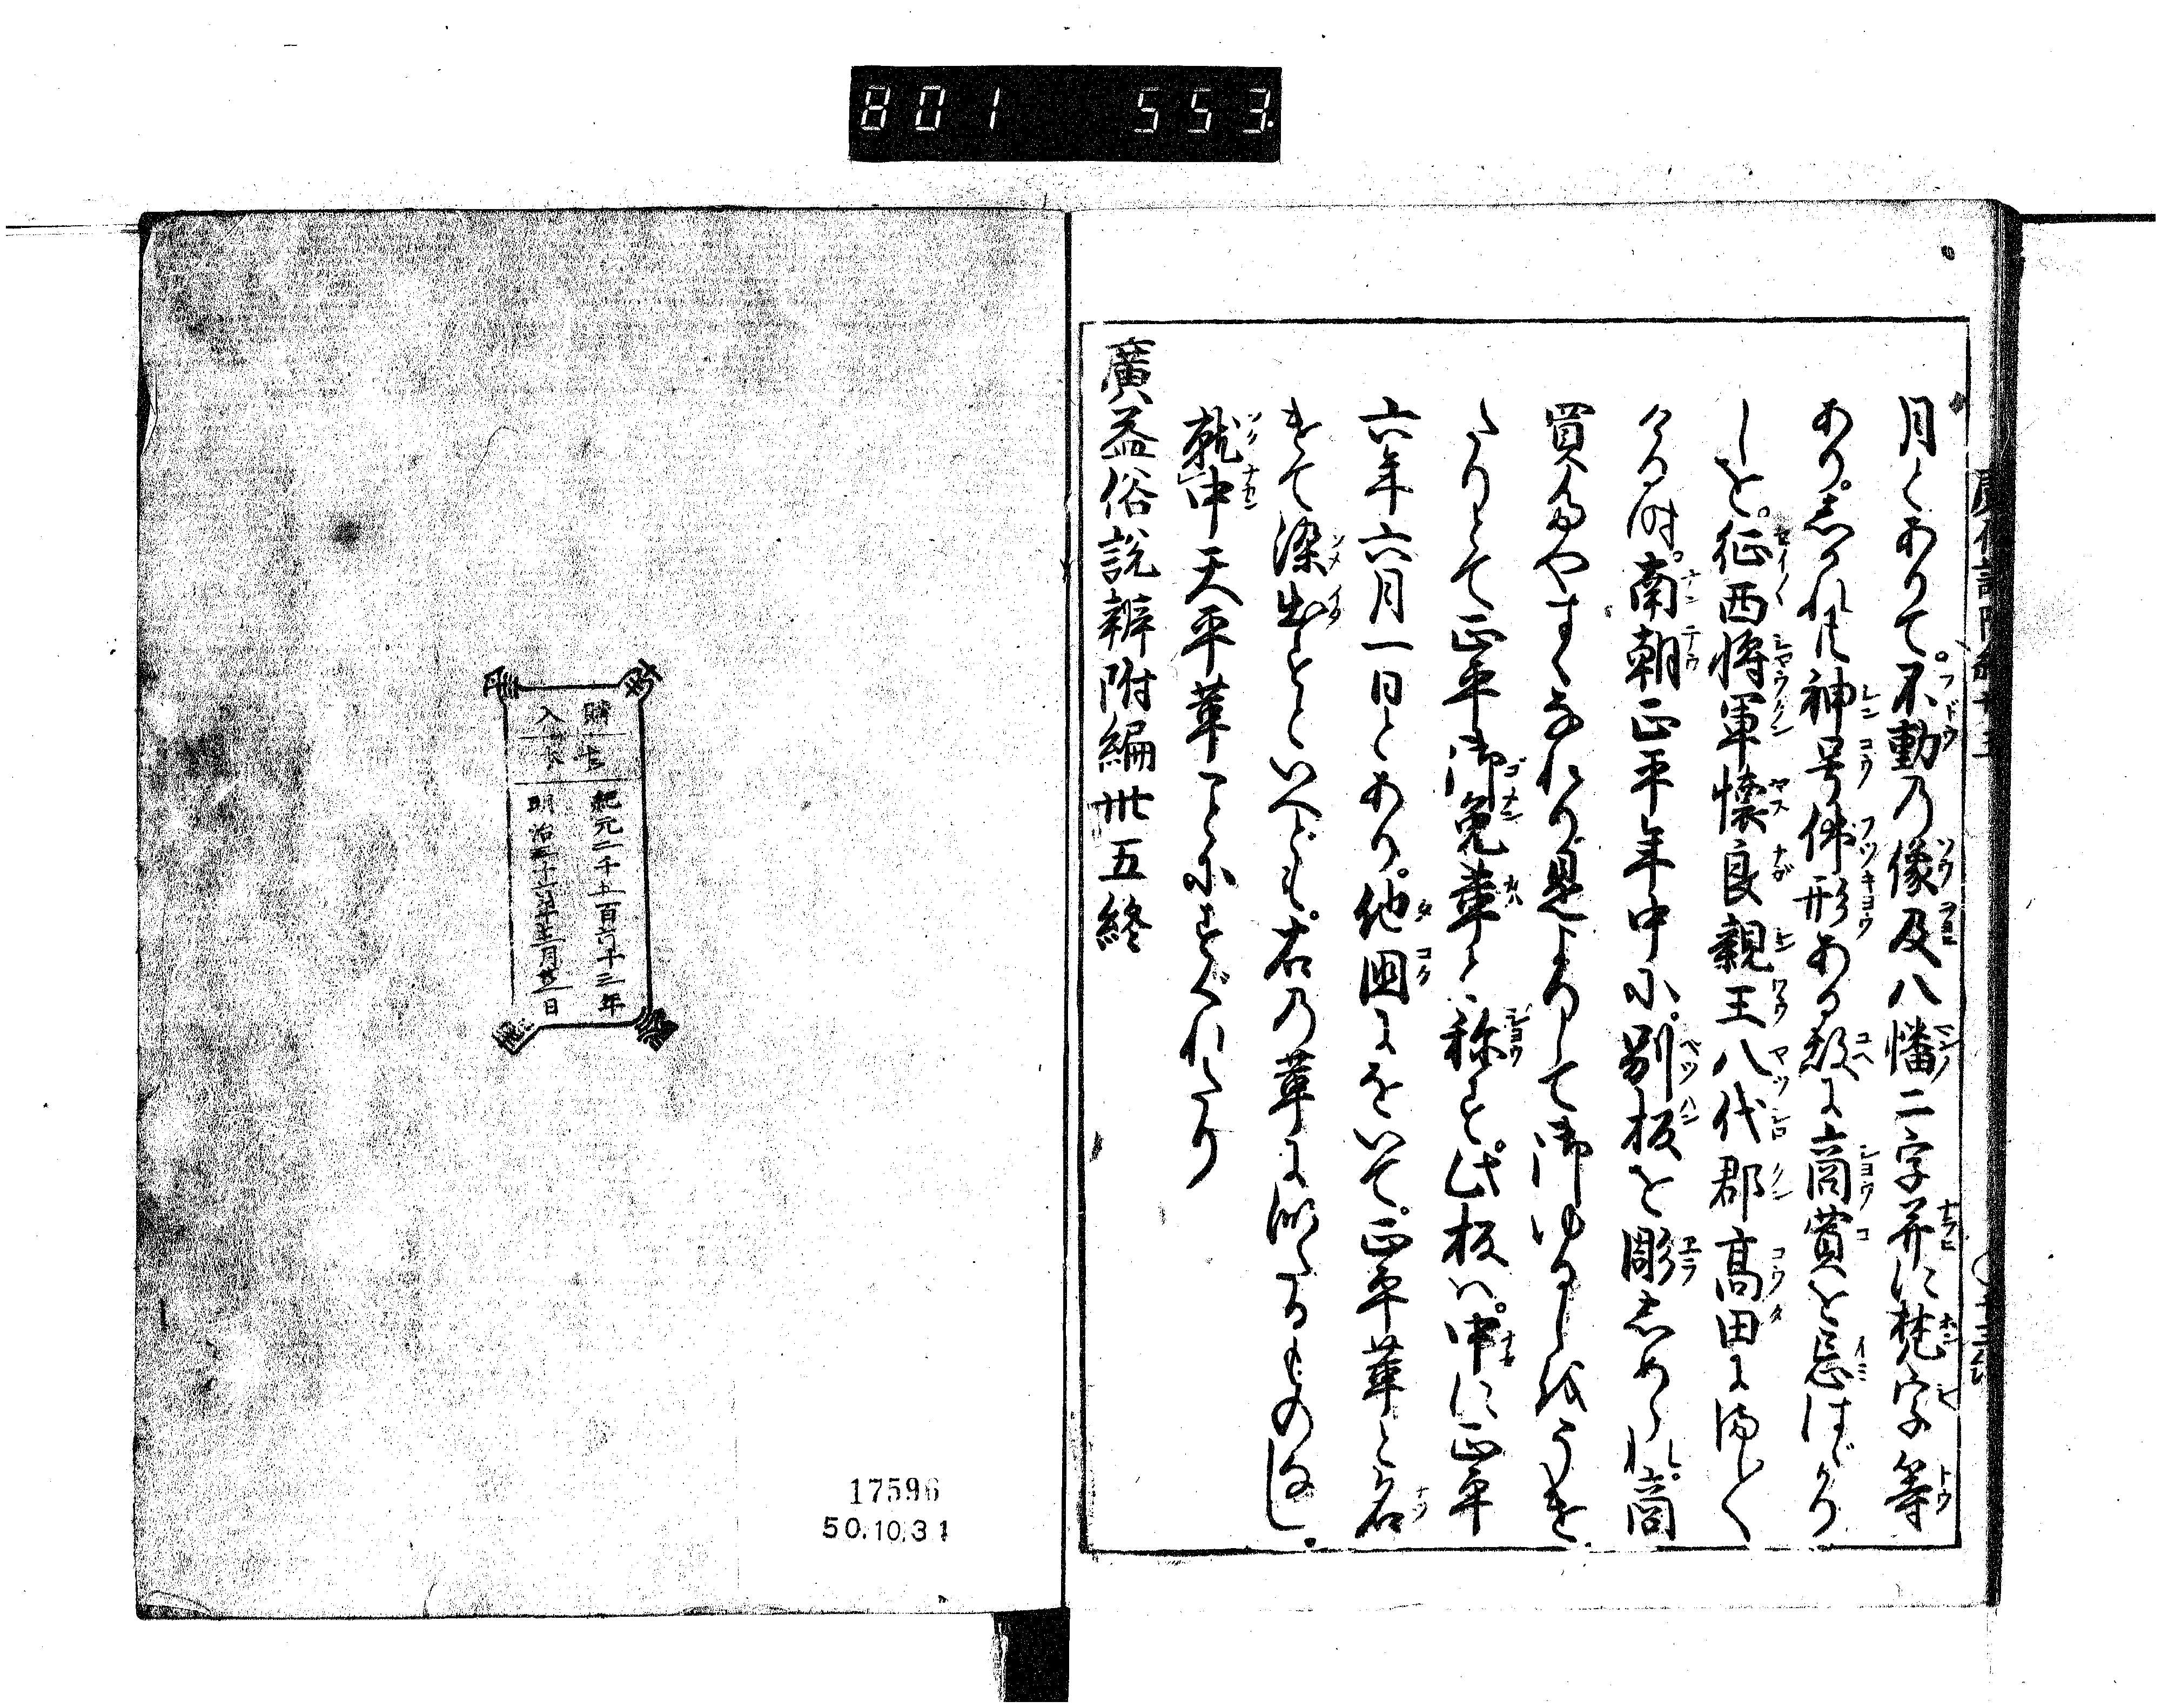 801 553
月とありて。不動乃像及八幡二字并に梵字等
あり。しかれに神号仏形ある故に商賣を忌はゞかり
しを。征西将軍懐良親王八代郡高田にましく
ける時。南朝正平年中に。別板を彫しめられ。商
買たやすくなれり。是よりして御ゆるしを
たりとて正平御免革と称ず。此板は。中に正平
六年六月一日とあり。他国にをいて。正平革と名
けて染出すといへども。右の革に似たるものなし。
就中天平革ことにすぐれたり
廣益俗説辨附編卅五終
購
入
紀元二千五百六十三年
明治三十六年
月
日
17596
50.10.31